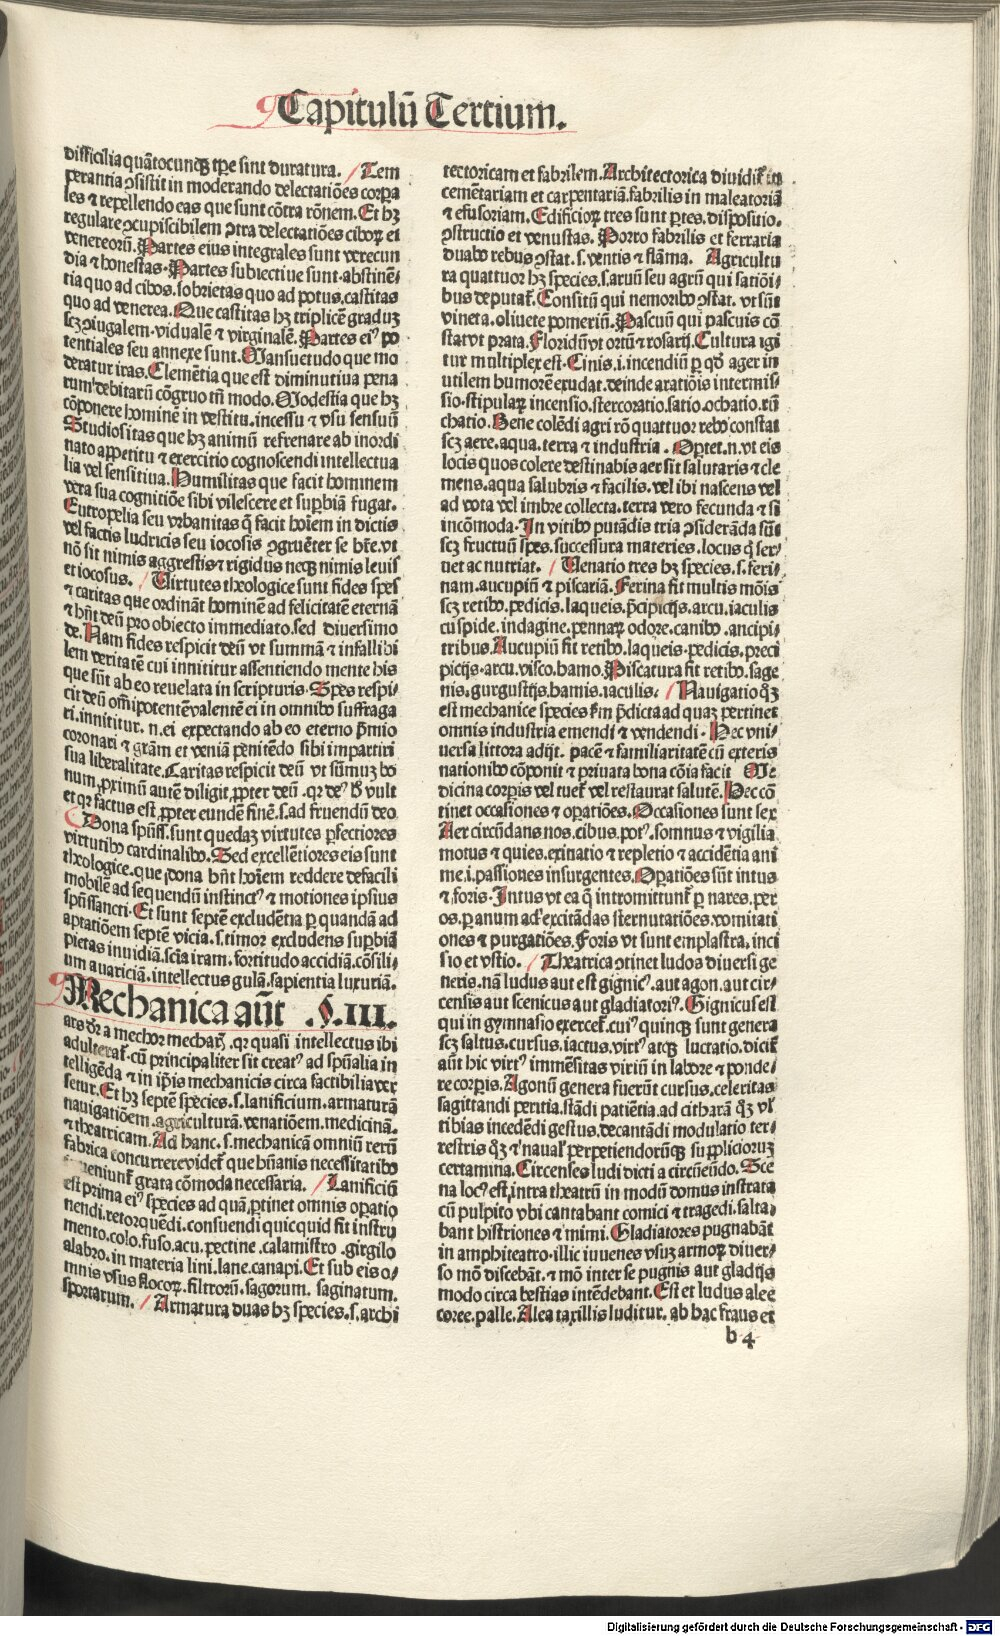 Capitulū Tertium.
difficilia quātocunqꝫ tꝑe sint duratura. Tem
perantia ꝯsistit in moderando delectatiōes corpa
les ⁊ repellendo eas que sunt cōtra rōnem. Et hꝫ
regulare ꝯcupiscibilem ꝯtra delectatiōes ciboꝝ et
venereorū. Partes eius integrales sunt verecun
dia ⁊ honestas. Partes subiectiue sunt. abstinē-
tia quo ad cibos. sobrietas quo ad potus. castitas
quo ad venerea. Que castitas hꝫ triplicē graduꝫ
scꝫ ꝯiugalem. vidualē ⁊ virginalē. Partes eiꝰ po
tentiales seu annexe sunt. Mansuetudo que mo
deratur iras. Clemētia que est diminutiua pena
rum debitarū cōgruo tn̄ modo. Modestia que hꝫ
cōponere hominē in vestitu. incessu ⁊ vsu sensuū
Studiositas que hꝫ animū refrenare ab inordi
nato appetitu ⁊ exercitio cognoscendi intellectua
lia vel sensitiua. Humilitas que facit hominem
vera sua cognitiōe sibi vilescere et suꝑbiā fugat.
Eutropelia seu vrbanitas q̄ facit hoīem in dictis
vel factis ludricis seu iocosis ꝯgruēter se hr̄e. vt
nō sit nimis aggrestis ⁊ rigidus neqꝫ nimis leuis
et iocosus. Uirtutes theologice sunt fides spes
⁊ caritas que ordināt hominē ad felicitatē eternā
⁊ hn̄t deū pro obiecto immediato. sed diuersimo
de. Nam fides respicit deū vt summā ⁊ infallibi
lem veritatē cui innititur assentiendo mente his
que sūt ab eo reuelata in scripturis. Spes respi-
cit deū om̄ipotentē valentē ei in omnibꝰ suffraga
ri. innititur. n. ei expectando ab eo eterno p̄mio
coronari ⁊ grām et veniā penitēdo sibi impartiri
sua liberalitate. Caritas respicit deū vt sūmuꝫ bo
num, primū autē diligit, ꝓpter deū. qꝛ deꝰ vult
et qꝛ factus est, ꝓpter eundē finē. s. ad fruendū deo
Dona spūs. sunt quedaꝫ virtutes ꝑfectiores
virtutibꝰ cardinalibꝰ. Sed excellētiores eis sunt
theologice. que dona hn̄t hoīem reddere defacili
mobilē ad sequendū instinctꝰ ⁊ motiones ipsius
spūssancti. Et sunt septē excludētia ꝑ quandā ad
aptatiōem septē vicia. s. timor excludens suꝑbiā
pietas inuidiā. scia iram. fortitudo accidiā. cōsili-
um auariciā. intellectus gulā. sapientia luxuriā.
Mechanica aūt .§.III.
ars dꝛ a mechor mecharꝭ. qꝛ quasi intellectus ibi
adulteratꝭ. cū principaliter sit creatꝰ ad spūalia in
telligēda ⁊ in ip̄is mechanicis circa factibilia ver
setur. Et hꝫ septē species. s. lanificium. armaturā
nauigatiōem. agriculturā. venatiōem. medicinā.
⁊ theatricam. Ad hanc. s. mechanicā omniū rerū
fabrica concurrere videtꝭ que hūanis necessitatibꝰ
inueniuntꝭ grata cōmoda necessaria. Lanificiū
est prima eiꝰ species ad quā ꝑtinet omnis oꝑatio
nendi. retorquēdi. consuendi quicquid fit instru
mento. colo. fuso. acu. pectine. calamistro. girgilo
alabro. in materia lini. lane. canapi. Et sub eis o-
mnis vsus flocoꝝ. filtrorū. sagorum. saginatum.
sportarum. Armatura duas hꝫ species. s. archi
tectoricam et fabrilem. Architectorica diuiditꝭ in
cemētariam et carpentariā. fabrilis in maleatoriā
⁊ efusoriam. Edificioꝝ tres sunt ꝑtes. dispositio.
ꝯstructio et venustas. Porro fabrilis et ferraria
duabꝰ rebus ꝯstat. s. ventis ⁊ flāma. Agricultu
ra quattuor hꝫ species. s. aruū seu agrū qui satiōi-
bus deputatꝭ. Consitū qui nemoribꝰ ꝯstat. vt sūt
vineta. oliuete pomeriū. Pascuū qui pascuis cō
stat vt prata. Floridū vt ortū ⁊ rosarij. Cultura igi
tur multiplex est. Cinis. i. incendiū ꝑ qd̄ ager in
utilem humorē exudat. deinde aratiōis intermis-
sio. stipulaꝝ incensio. stercoratio. satio. ochatio. rū
chatio. Bene colēdi agri rō quattuor rebꝰ constat
scꝫ aere. aqua. terra ⁊ industria. Optet. n. vt eis
locis quos colere destinabis aer sit salutaris ⁊ cle
mens. aqua salubris ⁊ facilis. vel ibi nascens vel
ad vota vel imbre collecta. terra vero fecunda ⁊ si
incōmoda. In vitibꝰ putādis tria ꝯsiderāda sūt
scꝫ fructuū spes. successura materies. locus q̄ ser-
uet ac nutriat. Uenatio tres hꝫ species. s. feri-
nam. aucupiū ⁊ piscariā. Ferina fit multis mōis
scꝫ retibꝰ. pedicis. laqueis. p̄cipicijs. arcu. iaculis
cuspide. indagine. pennaꝝ odore. canibꝰ. ancipi-
tribus. Aucupiū fit retibꝰ. laqueis. pedicis. preci
picijs. arcu. visco. hamo. Piscatura fit retibꝰ. sage
nis. gurgustijs. hamis. iaculis. Nauigatio qꝫ
est mechanice species ẜm p̄dicta ad quaꝫ pertinet
omnis industria emendi ⁊ vendendi. Hec vni-
uersa littora adijt. pacē ⁊ familiaritatē cū exteris
nationibꝰ cōponit ⁊ priuata bona cōia facit Me
dicina corpis vel tuetꝭ vel restaurat salutē. Hec cō
tinet occasiones ⁊ oꝑatiōes. Occasiones sunt sex
Aer circūdans nos. cibus. potꝰ. somnus ⁊ vigilia
motus ⁊ quies. exinatio ⁊ repletio ⁊ accidētia ani
me. i. passiones insurgentes. Oꝑatiōes sūt intus
⁊ foris. Intus vt ea q̄ intromittuntꝭ ꝑ nares. per
os. ꝑ anum ad excitādas sternutatiōes. vomitati
ones ⁊ purgatiōes. Foris vt sunt emplastra. inci
sio et vstio. Theatrica ꝯtinet ludos diuersi ge
neris. nā ludus aut est gignicꝰ. aut agon. aut cir-
censis aut scenicus aut gladiatoriꝰ. Gignicus est
qui in gymnasio exercetꝭ. cuiꝰ quinqꝫ sunt genera
scꝫ saltus. cursus. iactus. virtꝰ atqꝫ luctatio. dicitꝭ
aūt hic virtꝰ immēsitas viriū in labore ⁊ ponde-
re corpis. Agonū genera fuerūt cursus. celeritas
sagittandi peritia. stādi patiētia. ad citharā qꝫ vl'
tibias incedēdi gestus. decantādi modulatio ter-
restris qꝫ ⁊ naualꝭ perpetiendorūqꝫ suppliciorꝫ
certamina. Circenses ludi dicti a circūeūdo. Sce
na locꝰ est, intra theatrū in modū domus instrata
cū pulpito vbi cantabant comici ⁊ tragedi. salta-
bant histriones ⁊ mimi. Gladiatores pugnabāt
in amphiteatro. illic iuuenes vsuꝫ armoꝝ diuer-
so mō discebāt. ⁊ mō inter se pugnis aut gladijs
modo circa bestias intēdebant. Est et ludus alee
coree. palle. Alea taxillis luditur. ab hac fraus et
b 4
Digitalisierung gefördert durch die Deutsche Forschungsgemeinschaft - DFG